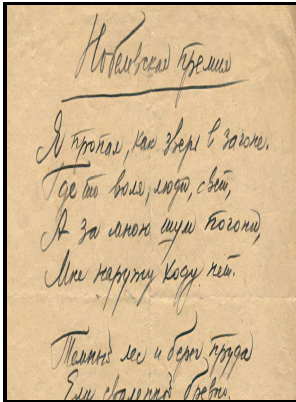 Нобелевская премия
Я пропал, как зверь в загоне.
Где то воля, люди, свет,
А за мною шум погони,
Мне наружу ходу нет.
Темный лес и берег пруда
Ели сваленной бревно,